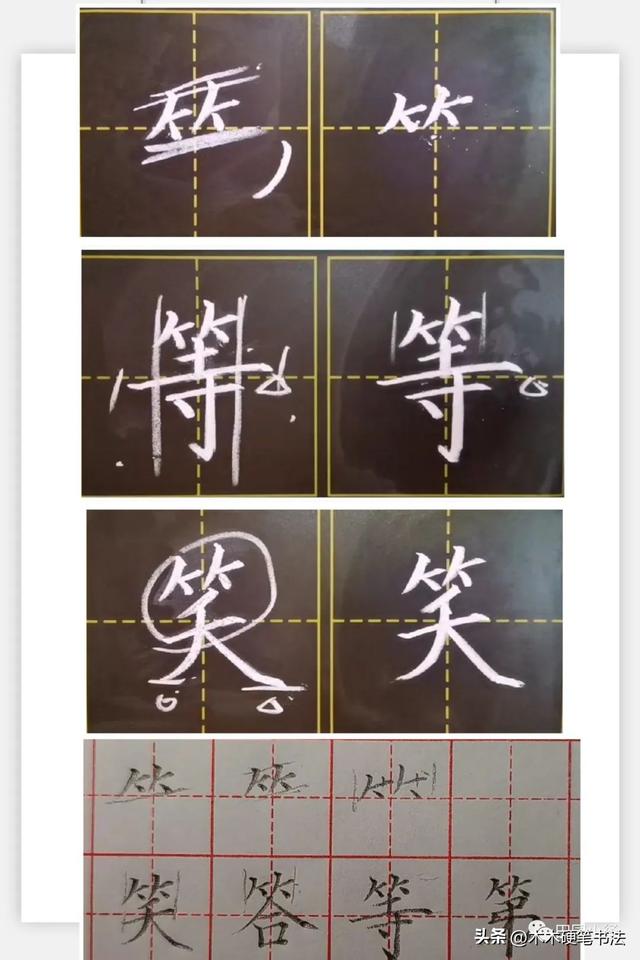 ⺮ ⺮
等 等
笑 笑
⺮ ⺮ ⺮
笑 答 等 第
头条 @木木硬笔书法